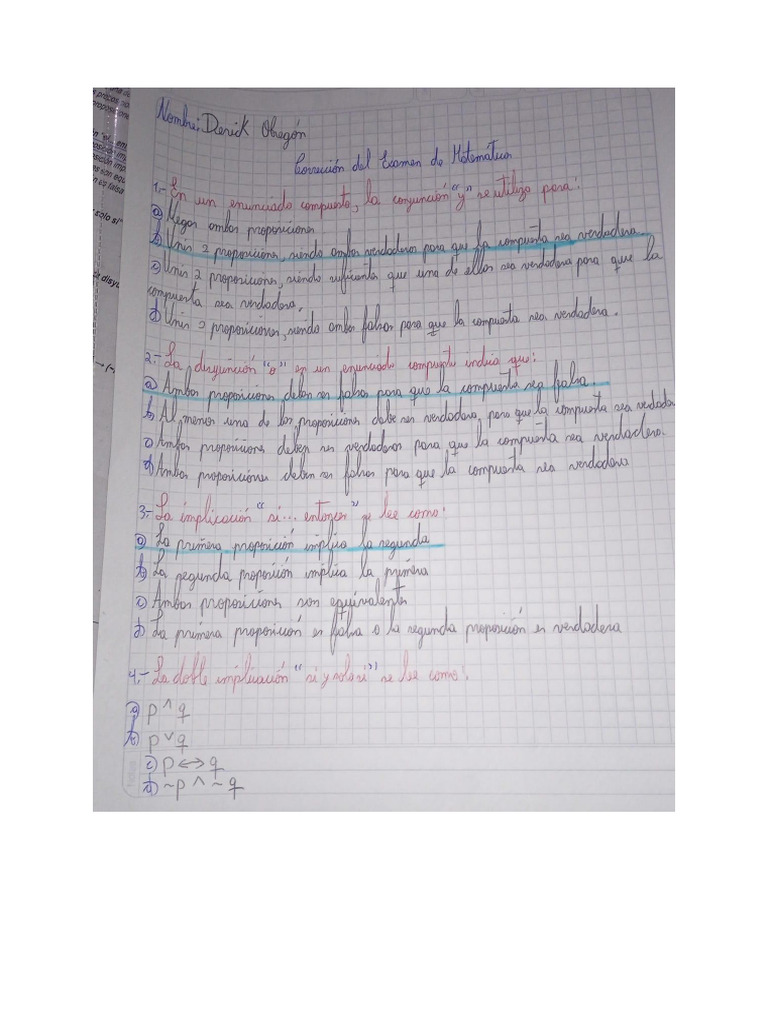 Nombre: Derick Obregón
Corrección del Examen de Matemática
1.- En un enunciado compuesto, la conjunción "y" se utiliza para:
a) Negar ambas proposiciones
b) Unir 2 proposiciones, siendo ambas verdaderas para que la compuesta sea verdadera.
c) Unir 2 proposiciones, siendo suficiente que una de ellas sea verdadera para que la
compuesta sea verdadera.
d) Unir 2 proposiciones, siendo ambas falsas para que la compuesta sea verdadera.
2.- La disyunción "o" en un enunciado compuesto indica que:
a) Ambas proposiciones deben ser falsas para que la compuesta sea falsa.
b) Al menos una de las proposiciones debe ser verdadera, para que la compuesta sea verdada
c) Ambas proposiciones deben ser verdaderas para que la compuesta sea verdadera.
d) Ambas proposiciones deben ser falsas para que la compuesta sea verdadera
3.- La implicación "si... entonces" se lee como:
a) La primera proposición implica la segunda
b) La segunda proposición implica la primera
c) Ambas proposiciones son equivalentes
d) La primera proposición es falsa o la segunda proposición es verdadera
4.- La doble implicación "si y solo si" se lee como:
a) p ^ q
b) p v q
c) p ↔ q
d) ~p ^ ~q